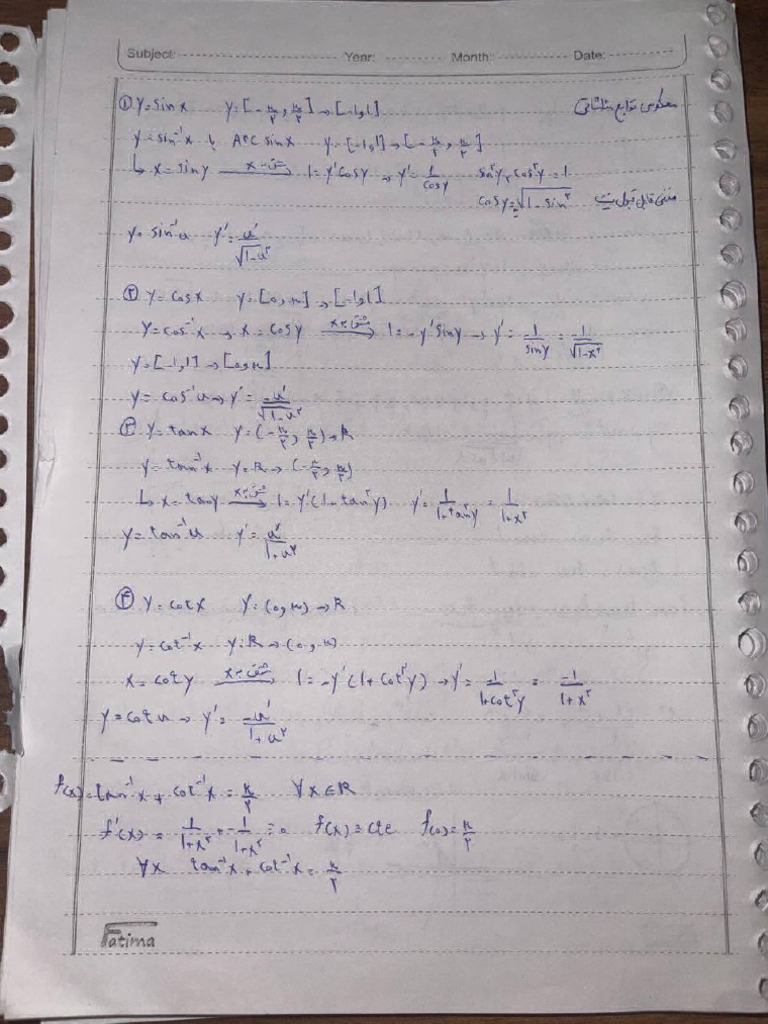 Subject: Year: Month: Date:
① y=sinx y=[-π/۲, π/۲]→[-۱,۱] معکوس توابع مثلثاتی
y=sin⁻¹x یا Arcsinx y=[-1,1]→[-π/۲, π/۲]
↳ x=siny مشتق x → 1=y'cosy → y'=1/cosy sin²y+cos²y=1
cosy=√(1-sin²) منفی قابل قبول نیست
y=sin⁻¹u y'=u'/√(1-u²)
② y=cosx y=[0,π]→[-1,1]
y=cos⁻¹x → x=cosy مشتق x → 1=-y'siny → y'=-1/siny=-1/√(1-x²)
y=[-1,1]→[0,π]
y=cos⁻¹u → y'=-u'/√(1-u²)
③ y=tanx y=(-π/۲, π/۲)→R
y=tan⁻¹x y=R→(-π/۲, π/۲)
↳ x=tany مشتق x → 1=y'(1+tan²y) y'=1/(1+tan²y)=1/(1+x²)
y=tan⁻¹u y'=u'/(1+u²)
④ y=cotx y=(0,π)→R
y=cot⁻¹x y:R→(0,π)
x=coty مشتق x → 1=-y'(1+cot²y) → y'=-1/(1+cot²y) = -1/(1+x²)
y=cot u → y'=-u'/(1+u²)
f(x)=tan⁻¹x+cot⁻¹x=π/۲ ∀x∈R
f'(x)=1/(1+x²)+-1/(1+x²)=0 f(x)=cte f(0)=π/۲
∀x tan⁻¹x+cot⁻¹x=π/۲
Fatima